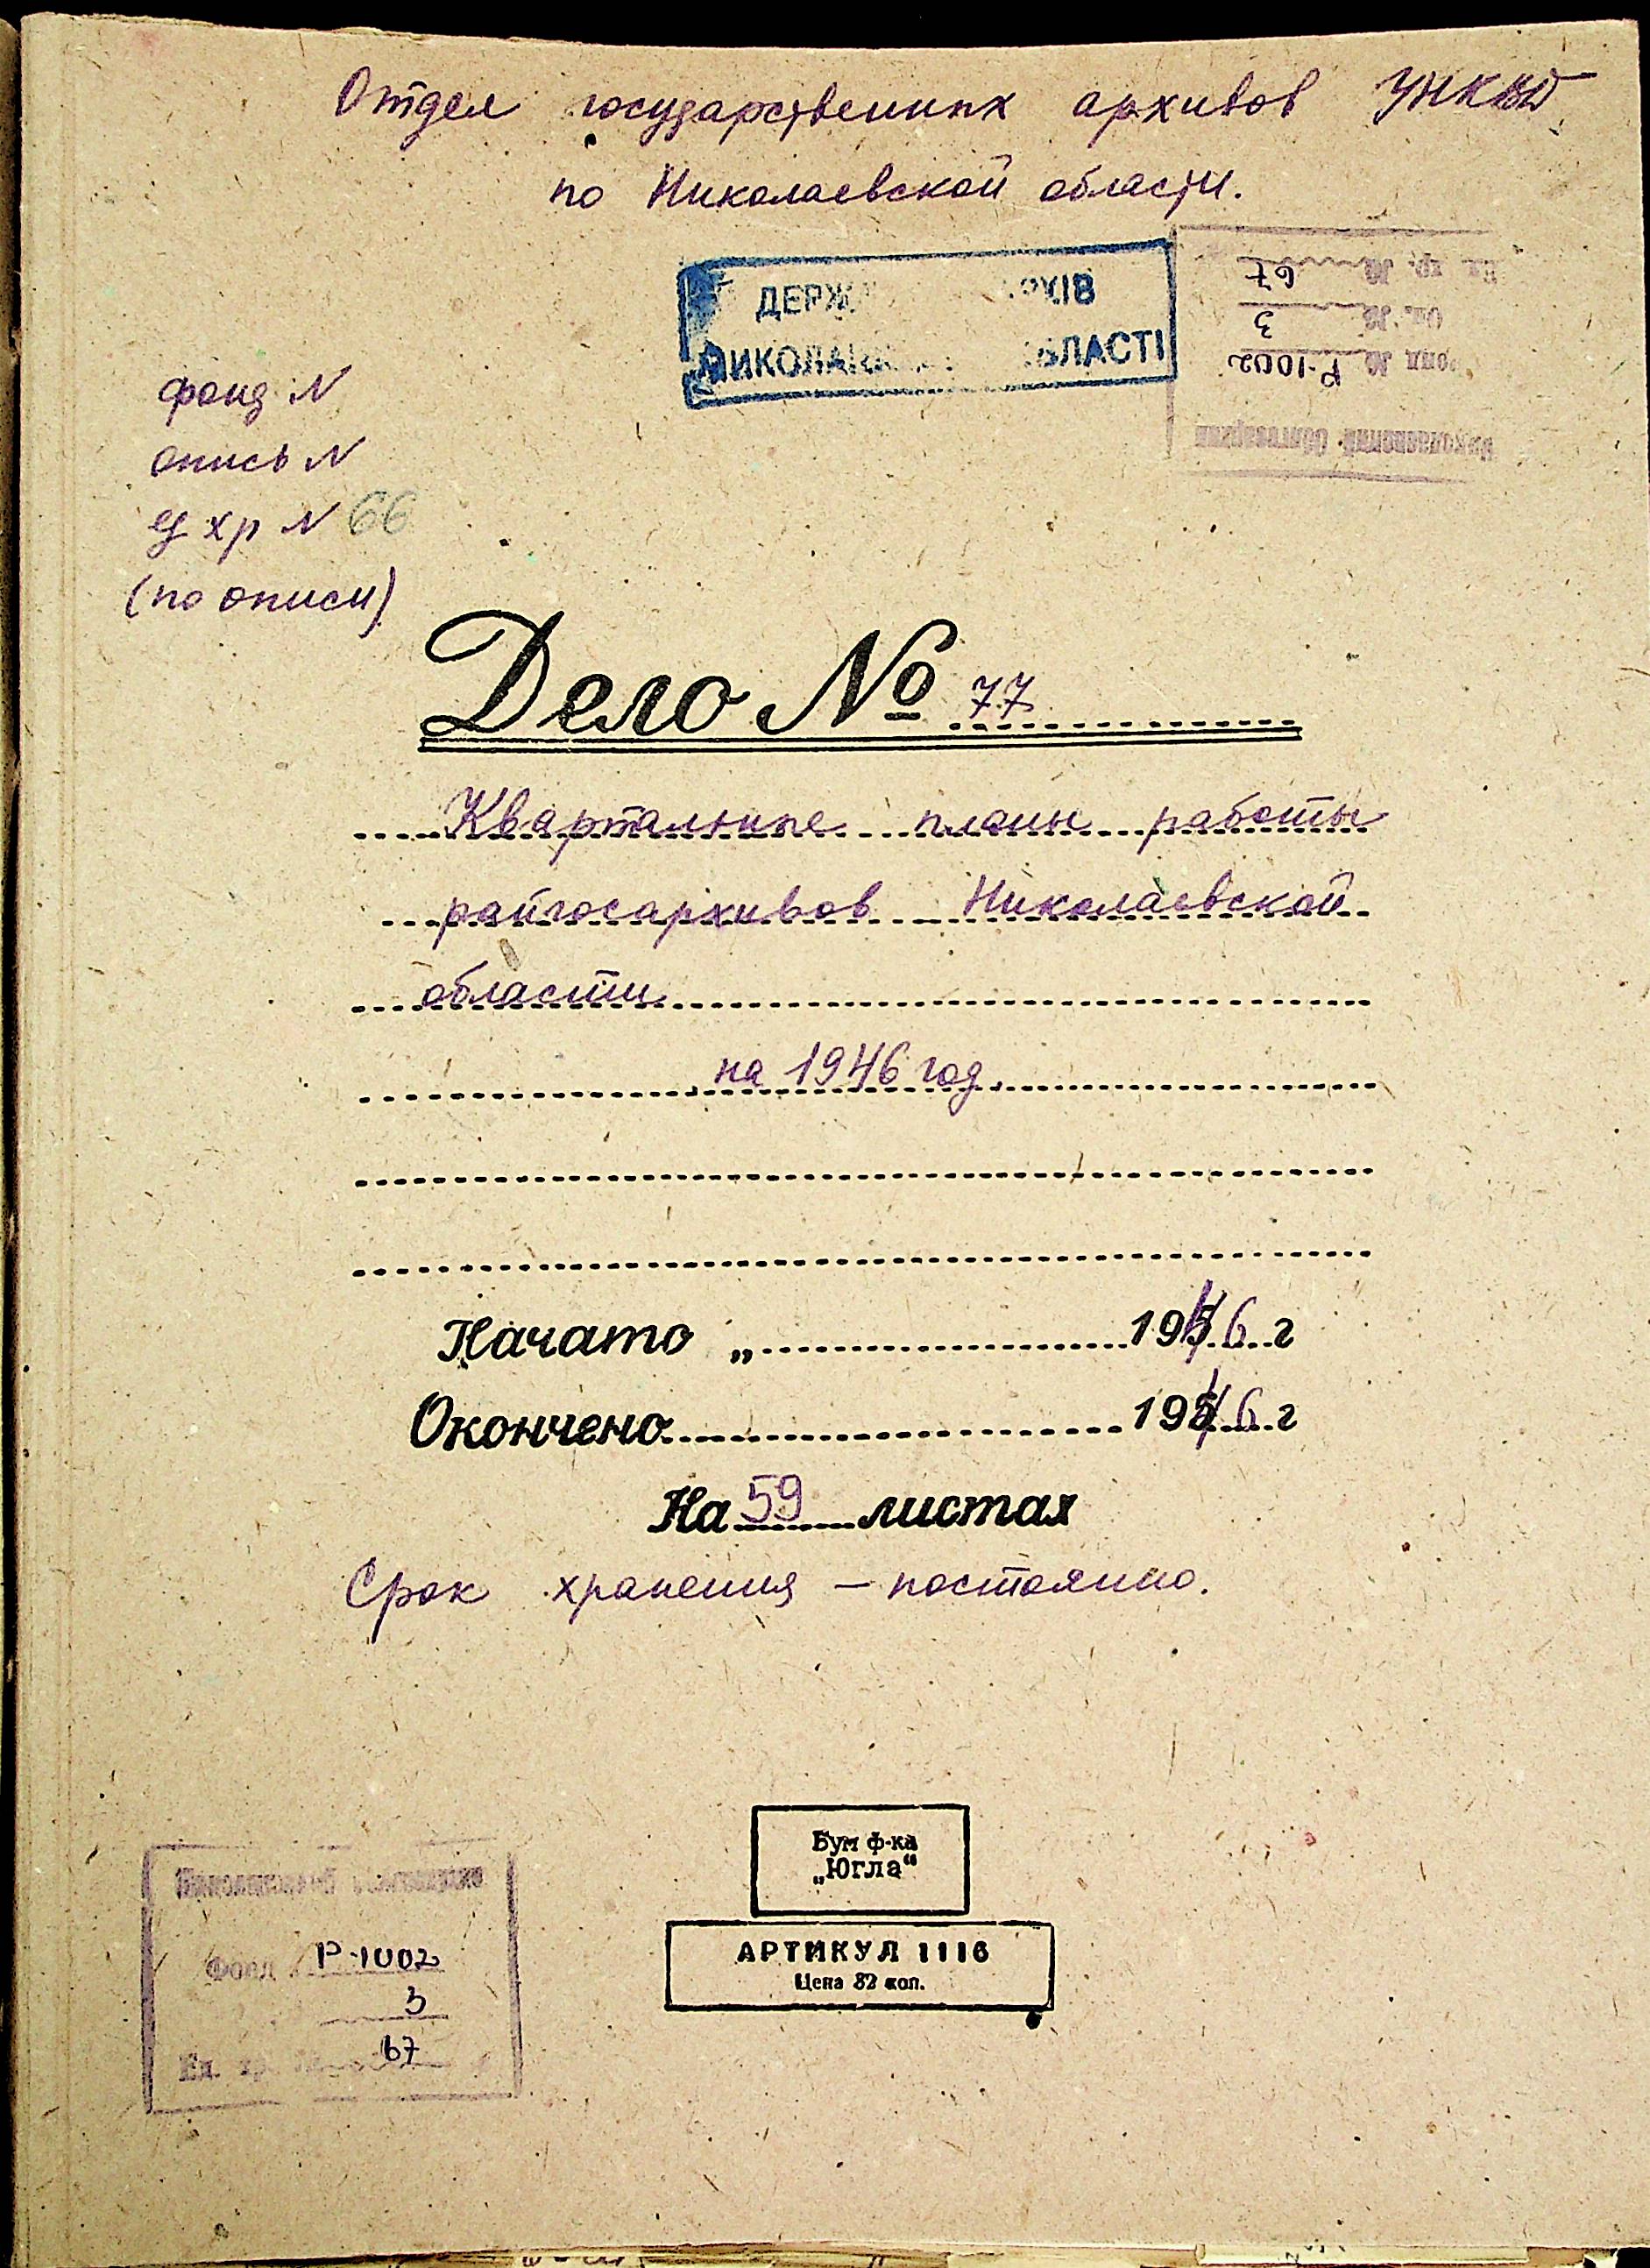 Отдел государственных архивов УНКВД
по Николаевской области.
ДЕРЖ АРХІВ
ОБЛАСТІ
Ед. хр. № 67
Оп. № 3
Фонд № Р-1002
Николаевский Облгосархив
фонд N
опись N
ед хр N 66
(по описи)
Дело № 77
Квартальные планы работы
райгосархивов Николаевской
области
на 1946 год
Начато „ 1946 г
Окончено 1946 г
На 59 листах
Срок хранения – постоянно.
Бум ф-ка
„Югла“
АРТИКУЛ 1116
Цена 82 коп.
Фонд Р-1002
3
Ед. хр. 67